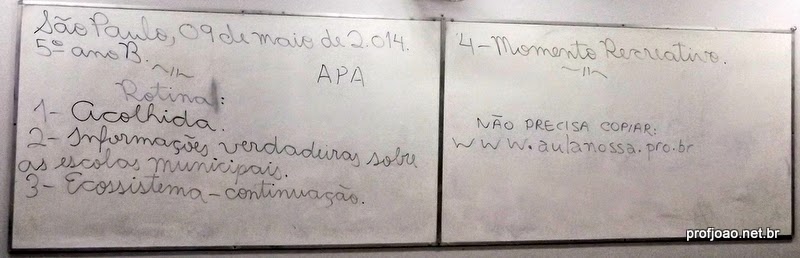 São Paulo, 09 de maio de 2.014.
5º ano B.
APA
Rotina:
1- Acolhida.
2- Informações verdadeiras sobre
as escolas municipais.
3- Ecossistema - continuação.
4- Momento Recreativo.
NÃO PRECISA COPIAR:
www.aulanossa.pro.br
profjoao.net.br